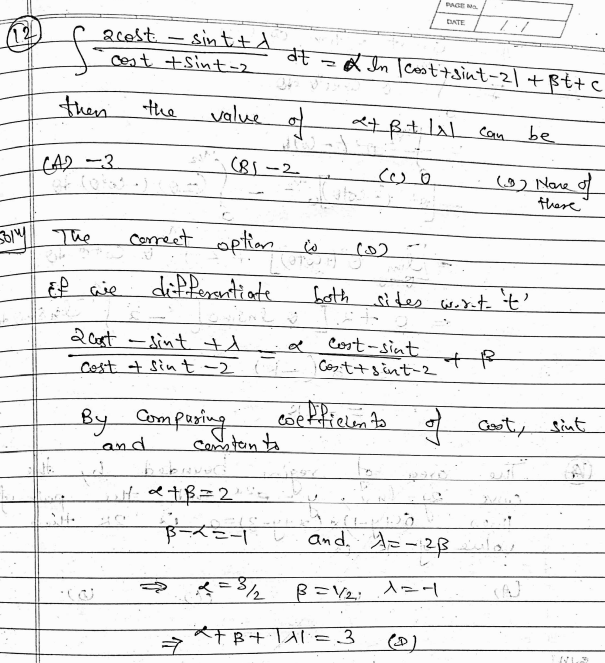 PAGE No.
DATE / /
12
∫ (2cost - sint + λ)/(cost + sint - 2) dt = α ln |cost + sint - 2| + βt + c
then the value of α + β + |λ| can be
(A) -3 (B) -2 (C) 0 (D) None of these
Solⁿ The correct option is (D)
If we differentiate both sides w.r.t. 't'
(2cost - sint + λ)/(cost + sint - 2) = α (cost - sint)/(cost + sint - 2) + β
By Comparing coefficients of cost, sint
and constants
α + β = 2
β - α = -1 and. λ = -2β
⇒ α = 3/2 β = 1/2, λ = -1
⇒ α + β + |λ| = 3 (D)